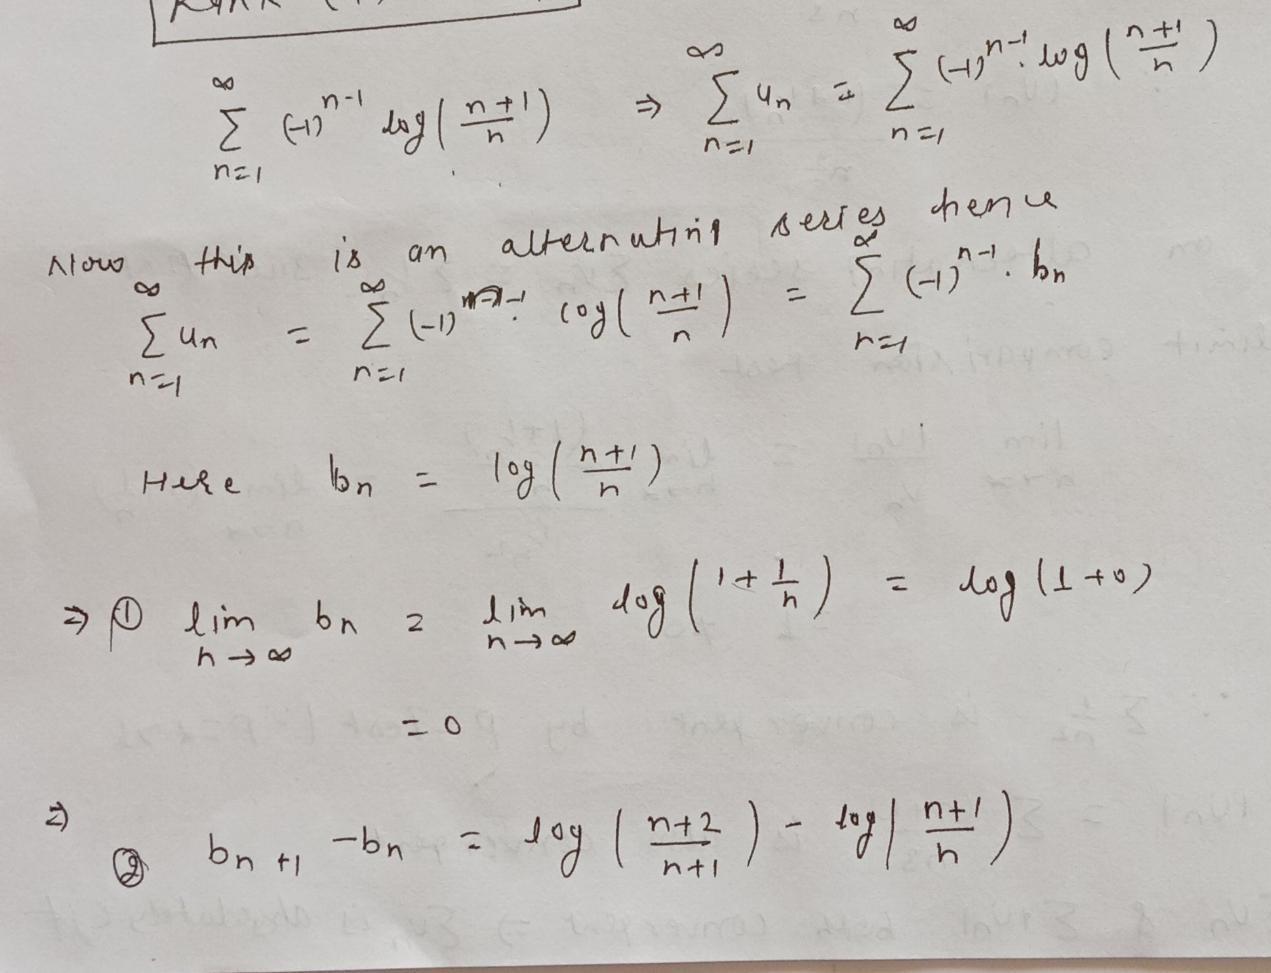 ∞ ∑ n=1 (-1)^{n-1} log( (n+1)/n ) ⇒ ∞ ∑ n=1 u_n = ∞ ∑ n=1 (-1)^{n-1}. log( (n+1)/n )
Now this is an alternating series hence
∞ ∑ n=1 u_n = ∞ ∑ n=1 (-1)^{n-1}. log( (n+1)/n ) = ∞ ∑ n=1 (-1)^{n-1}. b_n
Here b_n = log( (n+1)/n )
⇒ ① lim n→∞ b_n = lim n→∞ log( 1 + 1/n ) = log(1+0)
= 0
⇒ ② b_{n+1} - b_n = log( (n+2)/(n+1) ) - log( (n+1)/n )